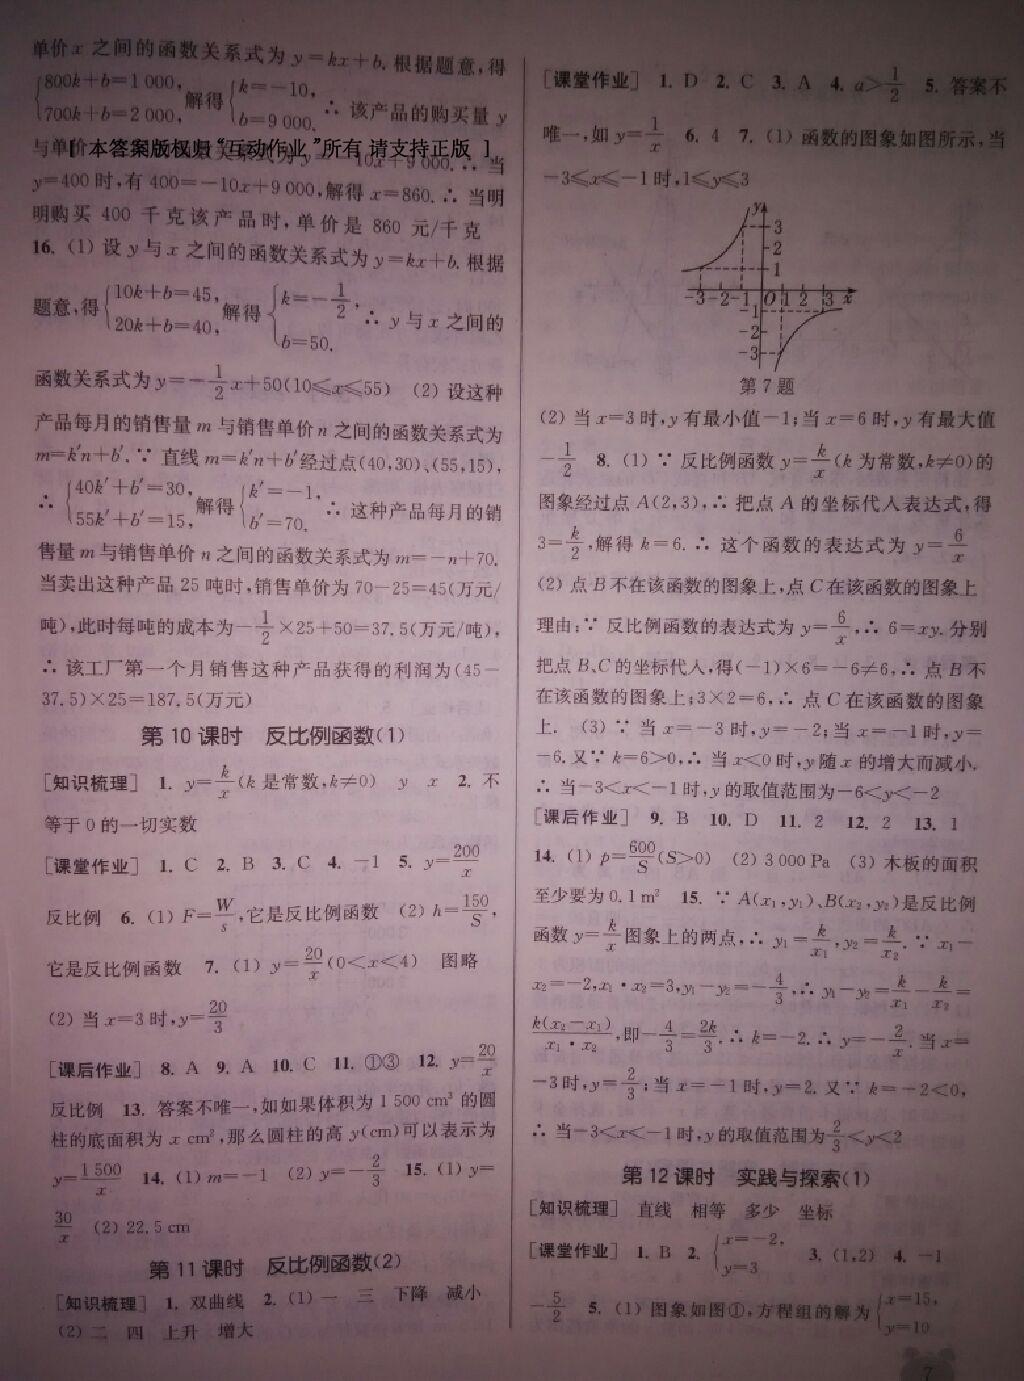 单价x 之间的函数关系式为 y=kx+b. 根据题意,得
{800k+b=1 000, 700k+b=2 000, 解得 {k=-10, b=9 000. ∴ 该产品的购买量 y
与单价 函数关系式为 y=-10x+9 000. ∵ 当
[ 本答案版权归“互动作业”所有 请支持正版 ]
y=400 时,有 400=-10x+9 000,解得 x=860. ∴ 当明
明购买 400 千克该产品时,单价是 860 元/千克
16. (1) 设 y 与 x 之间的函数关系式为 y=kx+b. 根据
题意,得 {10k+b=45, 20k+b=40, 解得 {k=-1/2, b=50. ∴ y 与 x 之间的
函数关系式为 y=-1/2x+50(10≤x≤55) (2) 设这种
产品每月的销售量 m 与销售单价 n 之间的函数关系式为
m=k′n+b′. ∵ 直线 m=k′n+b′经过点(40,30)、(55,15),
∴ {40k′+b′=30, 55k′+b′=15, 解得 {k′=-1, b′=70. ∴ 这种产品每月的销
售量 m 与销售单价 n 之间的函数关系式为 m=-n+70.
当卖出这种产品 25 吨时,销售单价为 70-25=45(万元/
吨),此时每吨的成本为-1/2×25+50=37.5(万元/吨),
∴ 该工厂第一个月销售这种产品获得的利润为(45-
37.5)×25=187.5(万元)
第 10 课时 反比例函数(1)
[知识梳理] 1. y=k/x(k 是常数,k≠0) y x 2. 不
等于 0 的一切实数
[课堂作业] 1. C 2. B 3. C 4. -1 5. y=200/x
反比例 6. (1) F=W/s,它是反比例函数 (2) h=150/S,
它是反比例函数 7. (1) y=20/x(0<x<4) 图略
(2) 当 x=3 时,y=20/3
[课后作业] 8. A 9. A 10. C 11. ①③ 12. y=20/x
反比例 13. 答案不唯一,如如果体积为 1 500 cm³ 的圆
柱的底面积为 x cm²,那么圆柱的高 y(cm)可以表示为
y=1 500/x 14. (1) m=-1 (2) y=-2/3 15. (1) y=
30/x (2) 22.5 cm
第 11 课时 反比例函数(2)
[知识梳理] 1. 双曲线 2. (1) 一 三 下降 减小
(2) 二 四 上升 增大
[课堂作业] 1. D 2. C 3. A 4. a>1/2 5. 答案不
唯一,如 y=1/x 6. 4 7. (1) 函数的图象如图所示,当
-3≤x≤-1 时,1≤y≤3
y
3
2
1
-3 -2 -1 O 1 2 3 x
-1
-2
-3
第 7 题
(2) 当 x=3 时,y 有最小值-1;当 x=6 时,y 有最大值
-1/2 8. (1) ∵ 反比例函数 y=k/x(k 为常数,k≠0)的
图象经过点 A(2,3),∴ 把点 A 的坐标代入表达式,得
3=k/2,解得 k=6. ∴ 这个函数的表达式为 y=6/x
(2) 点 B 不在该函数的图象上,点 C 在该函数的图象上
理由:∵ 反比例函数的表达式为 y=6/x,∴ 6=xy. 分别
把点 B、C 的坐标代入,得(-1)×6=-6≠6,∴ 点 B 不
在该函数的图象上;3×2=6,∴ 点 C 在该函数的图象
上. (3) ∵ 当 x=-3 时,y=-2;当 x=-1 时,y=
-6. 又∵ k=6>0,∴ 当 x<0 时,y 随 x 的增大而减小.
∴ 当-3<x<-1 时,y 的取值范围为-6<y<-2
[课后作业] 9. B 10. D 11. 2 12. 2 13. 1
14. (1) p=600/S(S>0) (2) 3 000 Pa (3) 木板的面积
至少要为 0.1 m² 15. ∵ A(x₁,y₁)、B(x₂,y₂)是反比例
函数 y=k/x 图象上的两点,∴ y₁=k/x₁,y₂=k/x₂. ∵ x₁-
x₂=-2,x₁·x₂=3,y₁-y₂=-4/3,∴ y₁-y₂=k/x₁-k/x₂=
k(x₂-x₁)/x₁·x₂,即-4/3=2k/3. ∴ k=-2. ∴ y=-2/x. 当 x=
-3 时,y=2/3;当 x=-1 时,y=2. 又∵ k=-2<0,
∴ 当-3<x<-1 时,y 的取值范围为2/3<y<2
第 12 课时 实践与探索(1)
[知识梳理] 直线 相等 多少 坐标
[课堂作业] 1. B 2. {x=-2, y=3 3. (1,2) 4. -1
-5/2 5. (1) 图象如图①,方程组的解为 {x=15, y=10
7